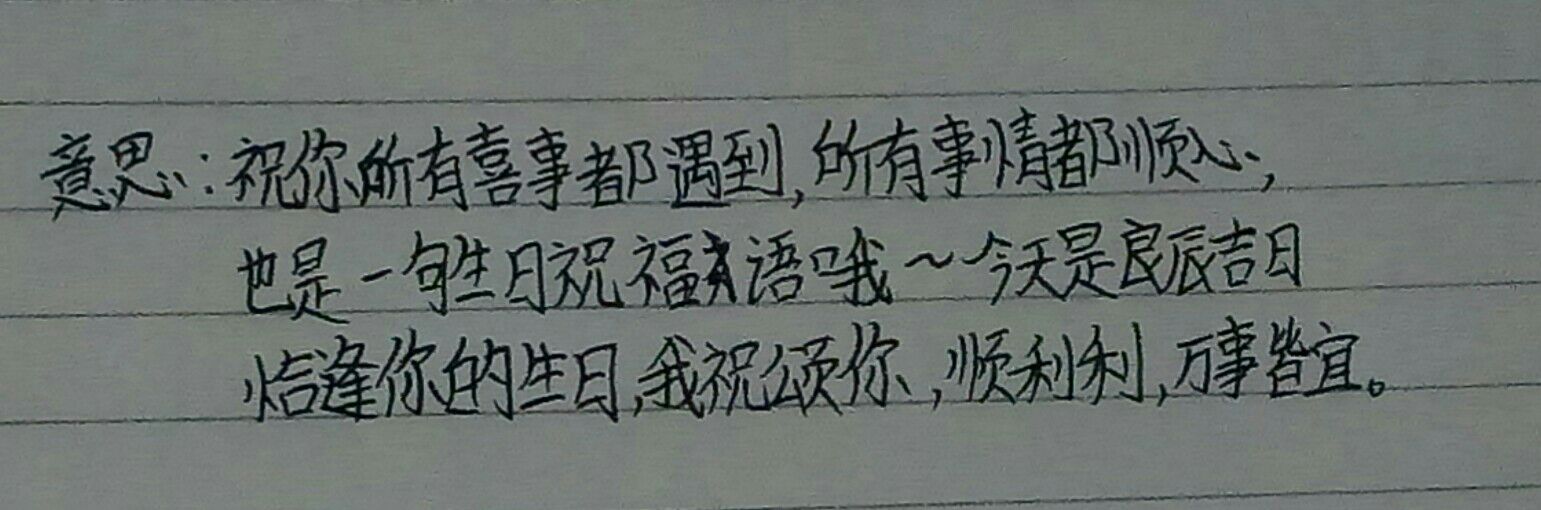 意思:祝你所有喜事都遇到,所有事情都顺心,
也是一句生日祝福语哦~今天是良辰吉日
恰逢你的生日,我祝颂你,顺利利,万事皆宜。